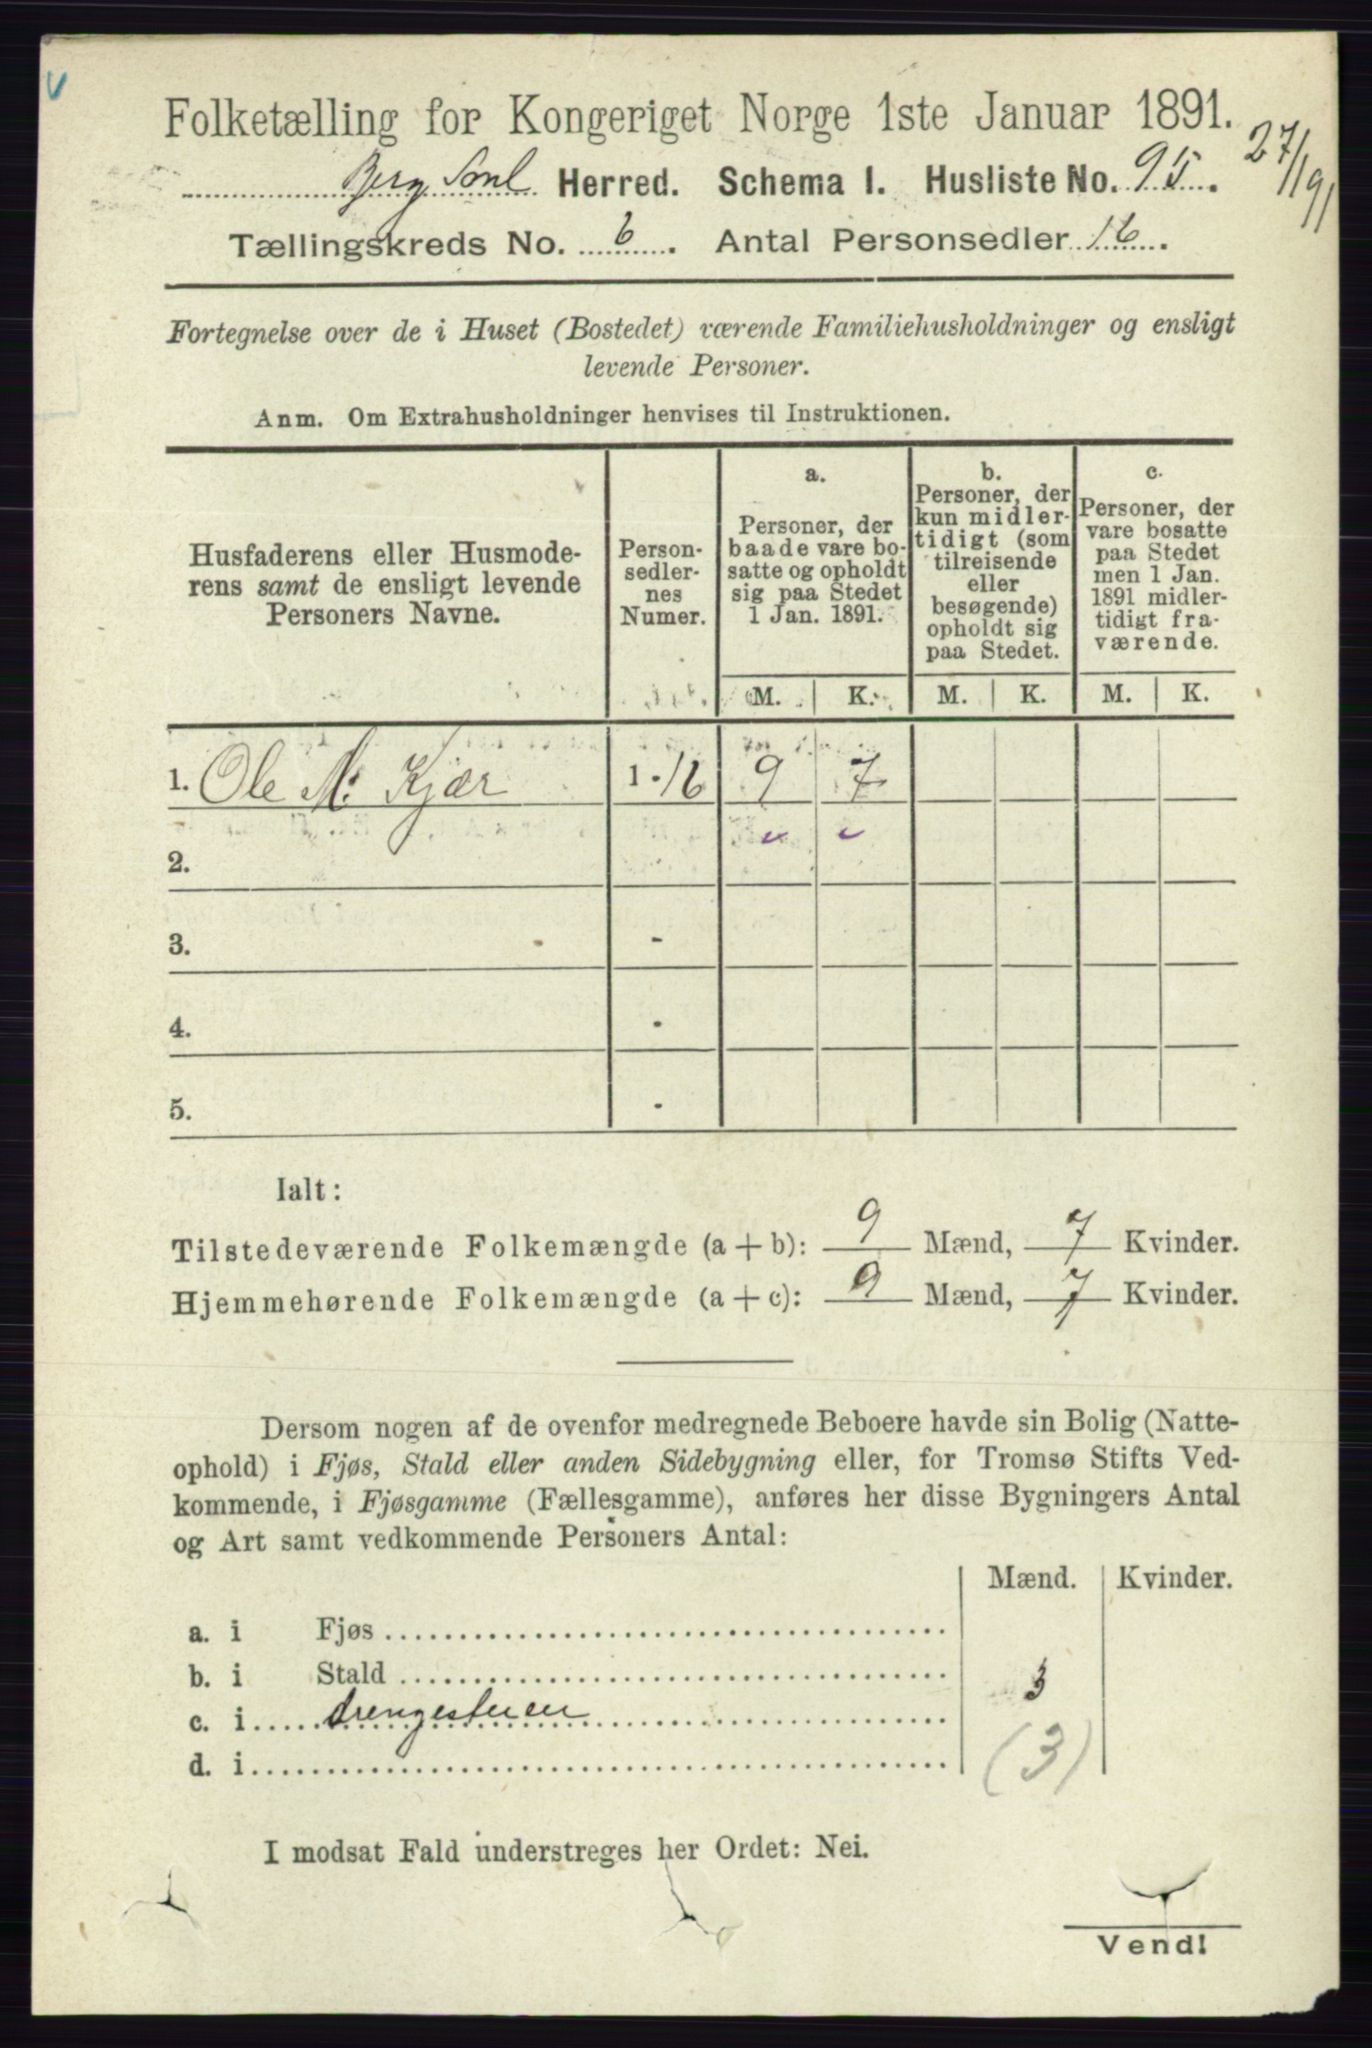 Folketælling for Kongeriget Norge 1ste Januar 1891.
27/1 91
Berg Herred. Schema I. Husliste No. 95.
Tællingskreds No. 6. Antal Personsedler 16.
Fortegnelse over de i Huset (Bostedet) værende Familiehusholdninger og ensligt
levende Personer.
Anm. Om Extrahusholdninger henvises til Instruktionen.
Husfaderens eller Husmode-
rens samt de ensligt levende
Personers Navne.
Person-
sedler-
nes
Numer.
a.
Personer, der
baade vare bo-
satte og opholdt
sig paa Stedet
1 Jan. 1891.
b.
Personer, der
kun midler-
tidigt (som
tilreisende
eller
besøgende)
opholdt sig
paa Stedet.
c.
Personer, der
vare bosatte
paa Stedet
men 1 Jan.
1891 midler-
tidigt fra-
værende.
M. K. M. K. M. K.
1. Ole M. Kjær 1-16 9 7
2.
3. -
4. -
5. -
Ialt:
Tilstedeværende Folkemængde (a + b): 9 Mænd, 7 Kvinder.
Hjemmehørende Folkemængde (a + c): 9 Mænd, 7 Kvinder.
Dersom nogen af de ovenfor medregnede Beboere havde sin Bolig (Natte-
ophold) i Fjøs, Stald eller anden Sidebygning eller, for Tromsø Stifts Ved-
kommende, i Fjøsgamme (Fællesgamme), anføres her disse Bygningers Antal
og Art samt vedkommende Personers Antal:
Mænd. Kvinder.
a. i Fjøs
b. i Stald 3
c. i drengestuen
d. i (3)
I modsat Fald understreges her Ordet: Nei.
Vend!